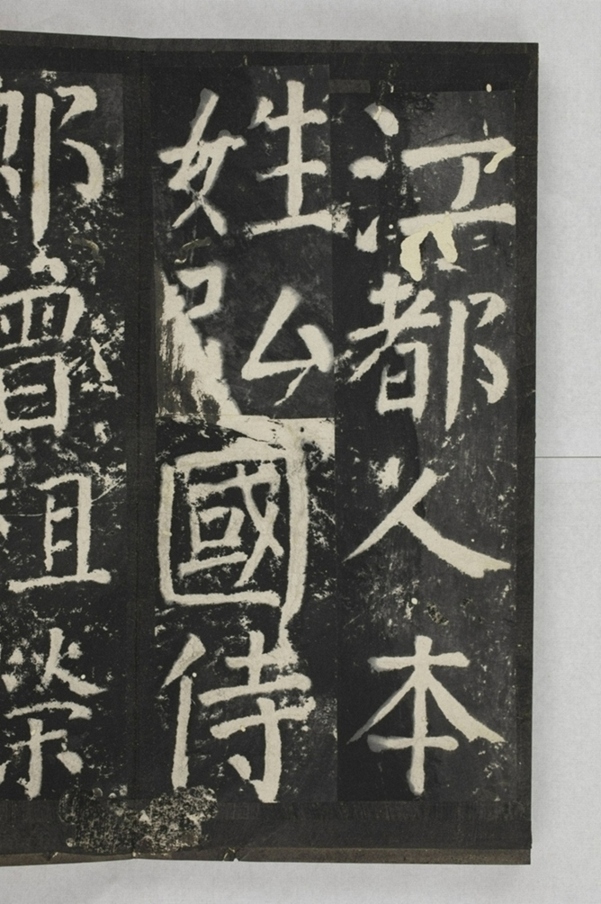 江都人本
姓弘國侍
郎曾祖榮